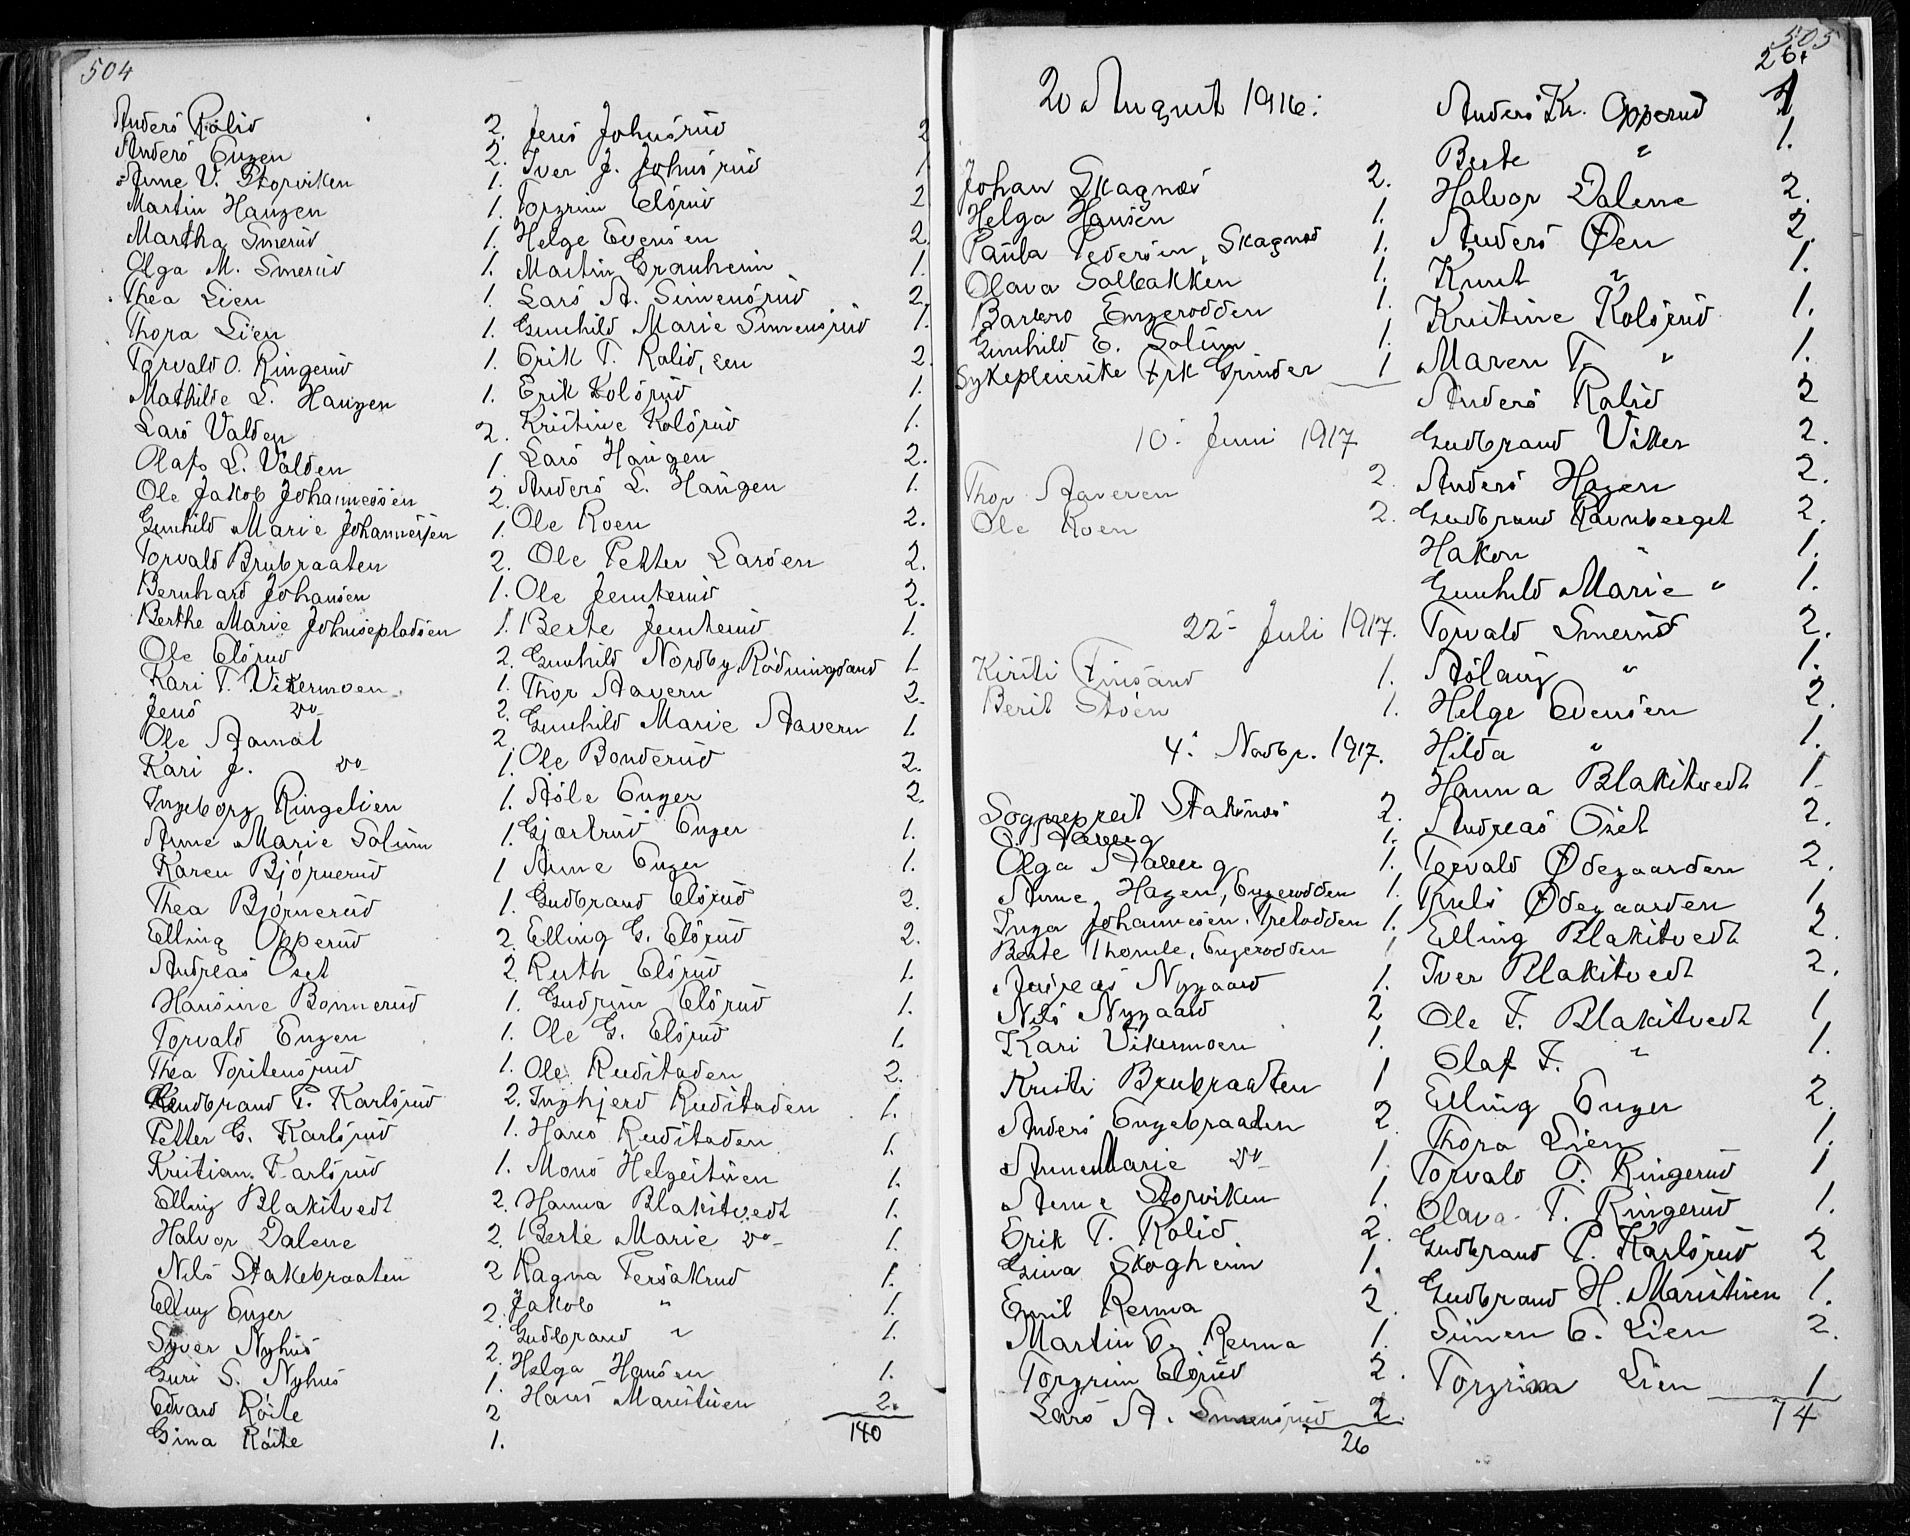 504
Anders Rolid 2.
Anders Engen 2.
Anne V. Storviken 1.
Martin Haugen 1.
Martha Smerud 1.
Olga M. Smerud 1.
Thea Lien 1.
Thora Lien 1.
Torvald O. Ringerud 1.
Mathilde L. Haugen 1.
Lars Valden 2.
Olaf L. Valden 1.
Ole Jakob Johannessen 2.
Gunhild Marie Johannessen 1.
Torvald Brubraaten 2.
Bernhard Johansen 1.
Berthe Marie Johnsepladsen 1.
Ole Elsrud 2.
Kari T. Vikermoen 1.
Jens do 2.
Ole Aamot 2
Kari J. do 1.
Ingeborg Ringelien 1.
Anne Marie Solum 1.
Karen Bjørnerud 1
Thea Bjørnerud 1.
Elling Opperud 2.
Andreas Oset 2.
Hansine Bonnerud 1.
Torvald Engen 1.
Thea Torstensrud 1.
Gudbrand P. Karlsrud 2.
Petter G. Karlsrud 1.
Kristian Karlsrud 1.
Elling Blakstvedt 2.
Halvor Dalene 2.
Nils Stakebraaten 2
Elling Enger 2.
Syver Nyhus 2.
Guri S. Nyhus 1.
Edvard Roite 2
Gina Roite 1.
Jens Johnsrud 2
Iver J. Johnsrud 1.
Torgrim Elsrud 2
Helge Evensen 2.
Martin Granheim 1.
Lars A. Simensrud 2.
Gunhild Marie Simensrud 1.
Erik T. Rolid, sen 2.
Erik Kolsrud 1.
Kristine Kolsrud 1.
Lars Haugen 2.
Anders L. Haugen 1.
Ole Roen 2.
Ole Petter Larsen 2.
Ole Jemterud 2.
Berte Jemterud 1.
Gunhild Nordby, Rødningsand 1.
Thor Aavern 2.
Gunhild Marie Aavern 1.
Ole Bonderud 2.
Asle Enger 2.
Gjertrud Enger 1.
Anne Enger 1.
Gudbrand Elsrud 2.
Elling G. Elsrud 2.
Ruth Elsrud 1.
Gudrun Elsrud 1.
Ole G. Elsrud 1.
Ole Rudstaden 2.
Ingbjerd Rudstaden 1.
Hans Rudstaden 1.
Mons Helgestuen 1.
Hanna Blakstvedt 1.
Berte Marie do 1.
Ragna Tersakrud 1.
Jakob " 1.
Gudbrand " 1.
Helga Hansen 1.
Hans Maristuen 2.
140
505
20 August 1916.
Johan Skagnæs 2.
Helga Hansen 1.
Paula Pedersen, Skagnæs 1.
Olava Solbakken 1.
Barbro Engerodden 1.
Gunhild E. Solum 1.
Sykepleierske Frk Grinder 1
10. Juni 1917
Thor Aaveren 2.
Ole Roen 2.
22. Juli 1917.
Kirsti Finsand 1.
Berit Støen 1.
4. Novbr. 1917.
Sogneprest Staksnes 2.
O. Aaberg 1.
Olga Aaberg 1.
Anne Hagen, Engerodden 1.
Inga Johannesen, Trelodden 1.
Berte Thomle, Engerodden 1
Andreas Nygaard 1.
Nils Nygaard 2
Kari Vikermoen 1.
Kristi Brubraaten 1
Anders Engebraaten 2.
Anne Marie do 1.
Anne Storviken 1.
Erik T. Rolid 2.
Gina Skogheim 1.
Emil Renna 2.
Martin E. Renna 1.
Torgrim Elsrud 2.
Lars A. Simensrud 2.
26
26.
Anders Kr. Opperud 1
Berte " 1.
Halvor Dalene 2.
Anders Øen 2.
Knut " 1.
Kristine Kolsrud 1.
Maren T. " 1.
Anders Rolid 2
Gudbrand Viker 2.
Anders Hagen 2.
Gudbrand Ravnberget 2.
Hakon " 1.
Gunhild Marie " 1.
Torvald Smerud 2.
Aslaug " 1.
Helge Evensen 2.
Hilda " 1.
Hanna Blakstvedt 1.
Andreas Oset 2.
Torvald Ødegaarden 2.
Truls Ødegaarden 1
Elling Blakstvedt 2.
Iver Blakstvedt 2.
Ole F. Blakstvedt 1
Olaf F. " 1.
Elling Enger 2.
Thora Lien 1.
Torvald O. Ringerud 1
Olava T. Ringerud 1.
Gudbrand P. Karlsrud 2
Gudbrand H. Maristuen 1.
Simen E. Lien 2.
Torgrim Lien 1
74